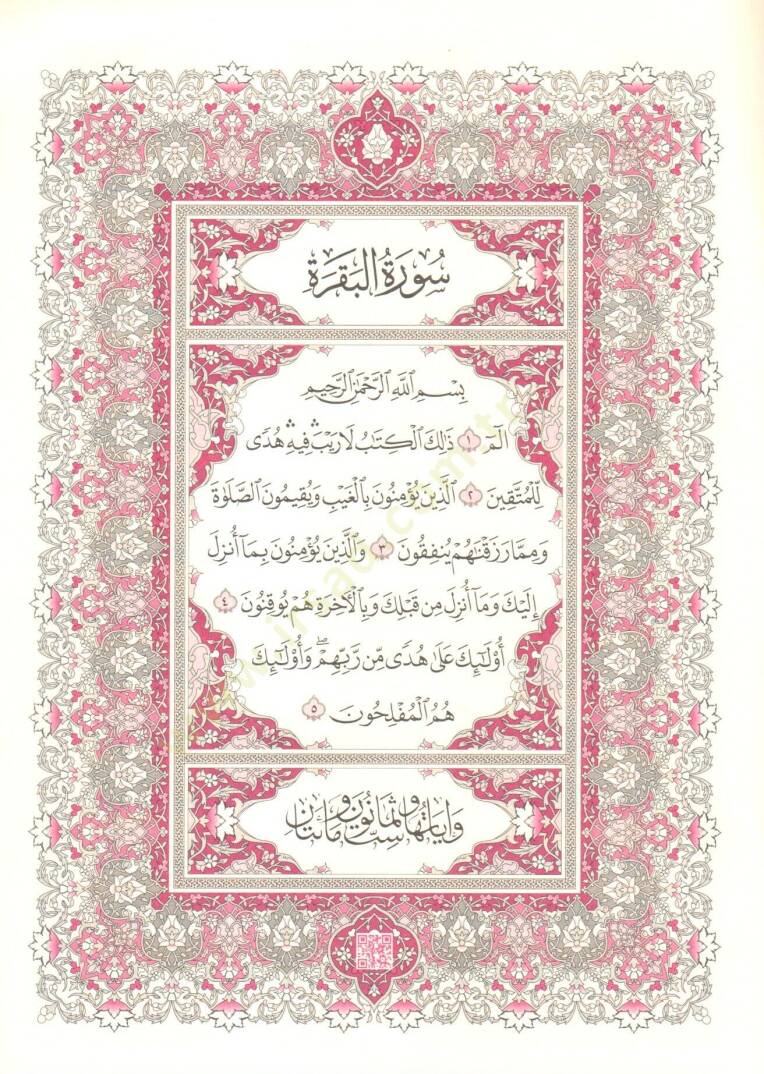 سُورَةُ الْبَقَرَةِ
بِسْمِ ٱللَّهِ ٱلرَّحْمَٰنِ ٱلرَّحِيمِ
الٓمٓ ﴿١﴾ ذَٰلِكَ ٱلْكِتَٰبُ لَا رَيْبَ ۛ فِيهِ ۛ هُدًى
لِّلْمُتَّقِينَ ﴿٢﴾ ٱلَّذِينَ يُؤْمِنُونَ بِٱلْغَيْبِ وَيُقِيمُونَ ٱلصَّلَوٰةَ
وَمِمَّا رَزَقْنَٰهُمْ يُنفِقُونَ ﴿٣﴾ وَٱلَّذِينَ يُؤْمِنُونَ بِمَآ أُنزِلَ
إِلَيْكَ وَمَآ أُنزِلَ مِن قَبْلِكَ وَبِٱلْـَٔاخِرَةِ هُمْ يُوقِنُونَ ﴿٤﴾
أُو۟لَٰٓئِكَ عَلَىٰ هُدًى مِّن رَّبِّهِمْ ۖ وَأُو۟لَٰٓئِكَ
هُمُ ٱلْمُفْلِحُونَ ﴿٥﴾
وَاٰيَاتُهَا سِتٌّ وَثَمَانُونَ وَمِائَتَانِ